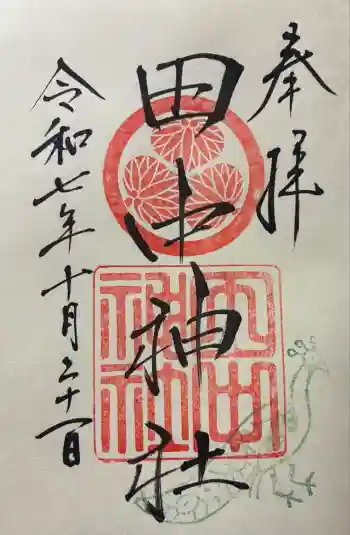 奉拝
田中神社
令和七年十月二十一日
田中
神社